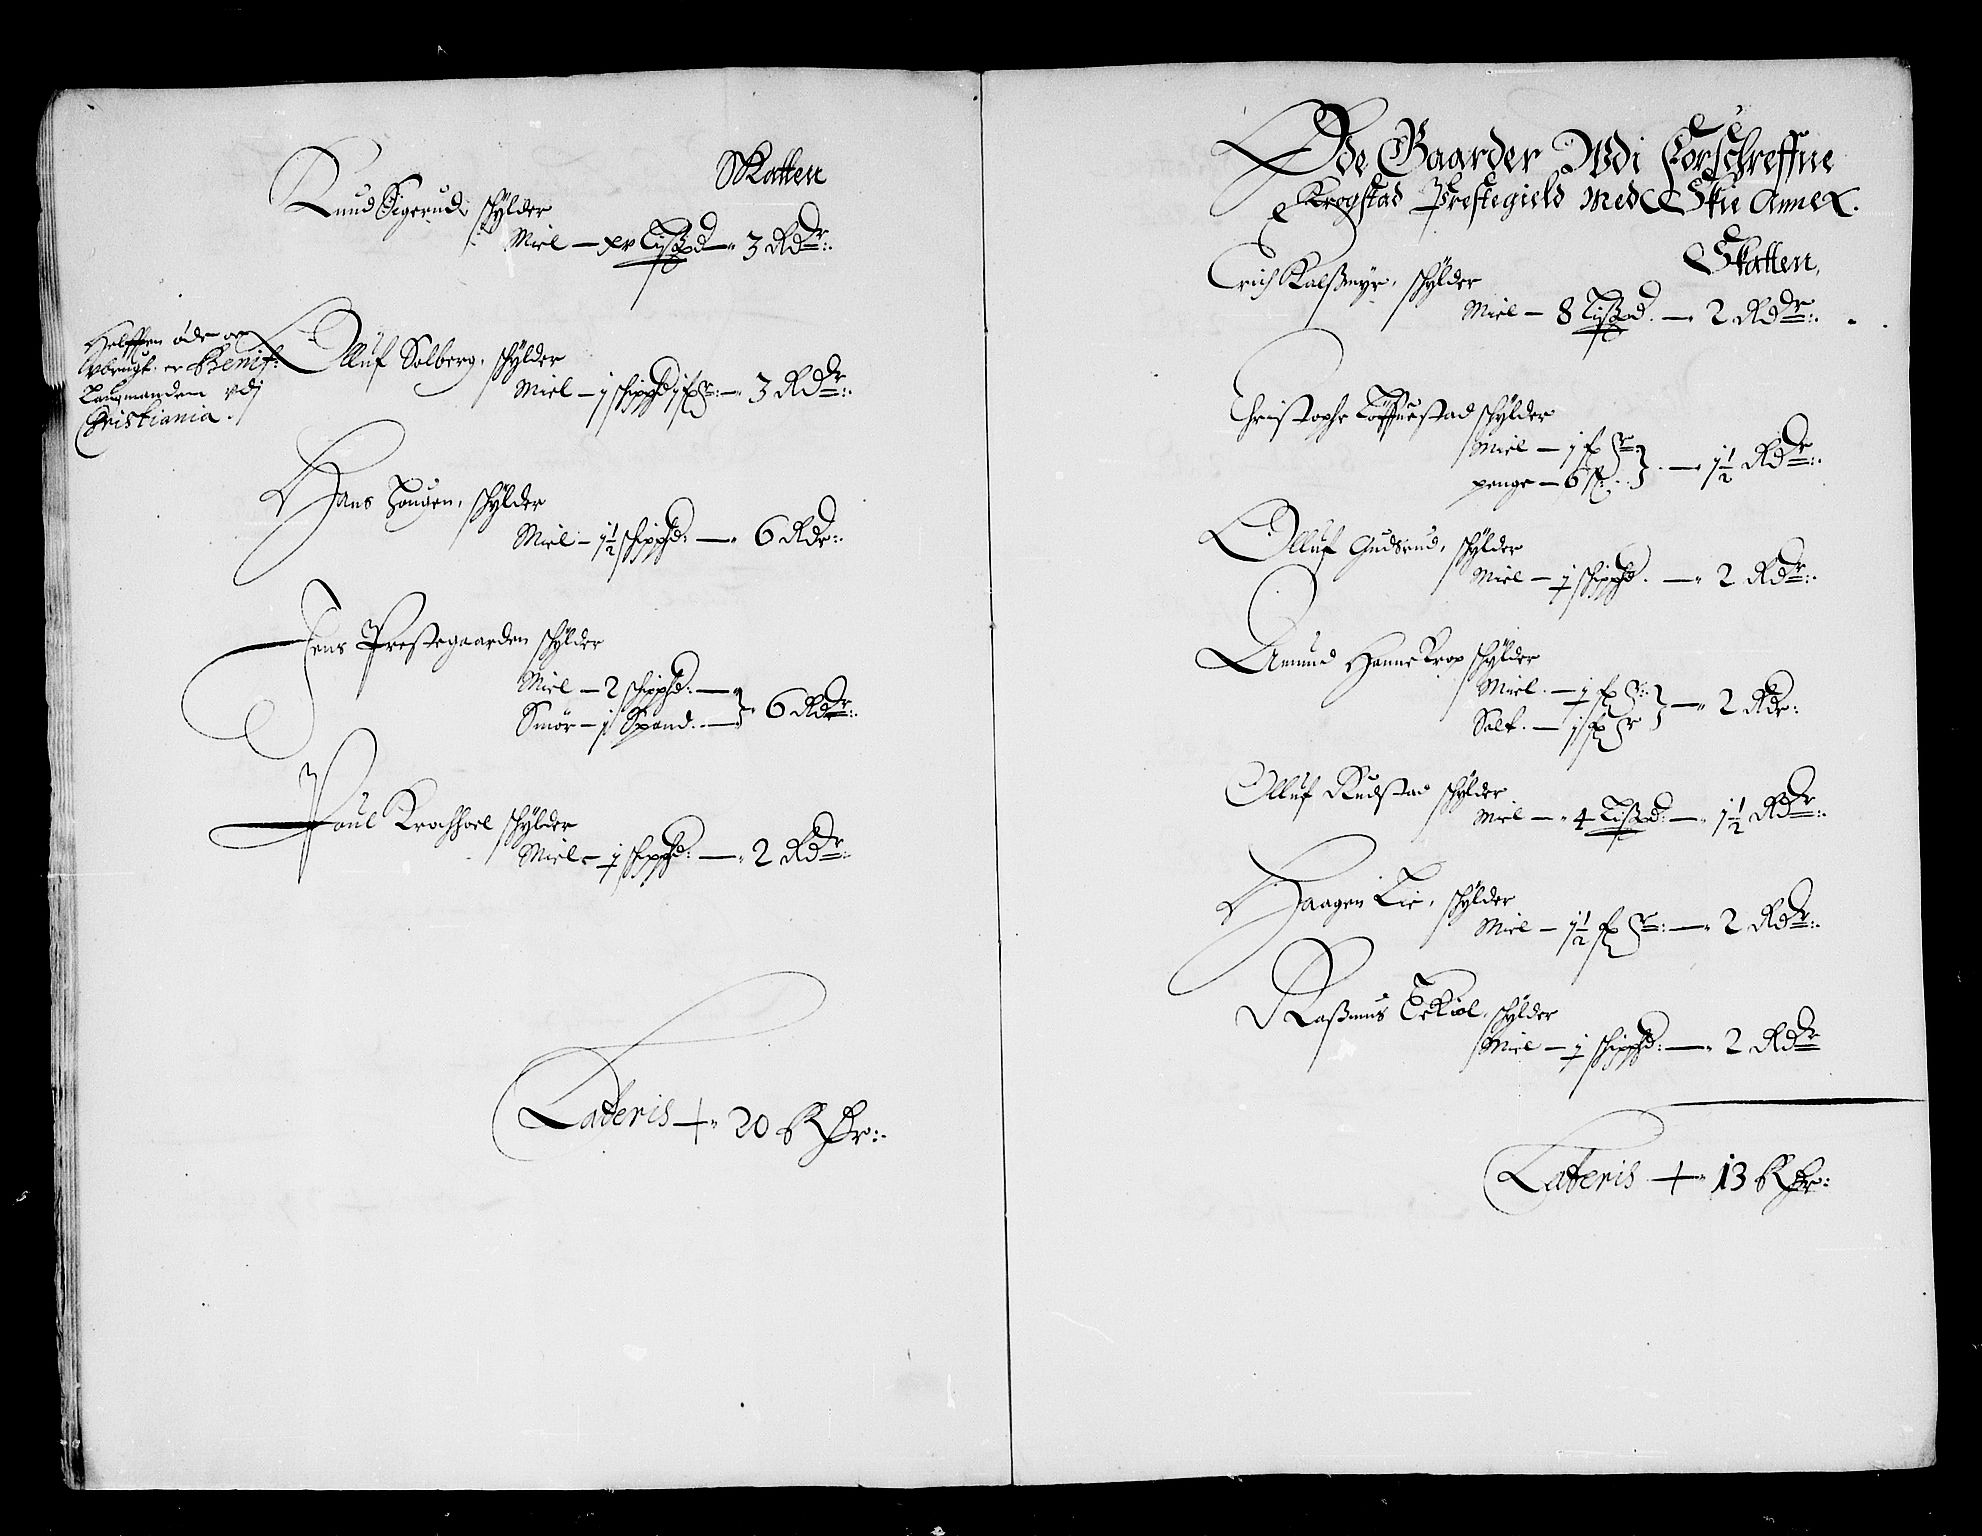 Skatten
Knud Sigerud, schÿlder
Miel — xv Lißpd — 3 Rdr:
Helfften øde oc
vbrugt. er Benif:
Laugmanden vdj
Christiania.
Olluf Solberg, schÿlder
Miel — j schippd j fr: — 3 Rdr:
Hans Hougen, schÿlder
Miel — j½ schippd: — 6 Rdr:
Jens Prestegaarden schÿlder
Miel — 2 schippd: —
Smør — j Spand. — 6 Rdr:
Poul Krochhoel schÿlder
Miel — j schippd: — 2 Rdr:
Lateris — 20 Rdr:
Øde Gaarder Wdi Forschreffne
Krogstad Prestegield med Skie Annex.
Skatten
Erich Kalßmyr, schÿlder
Miel — 8 Lißpd. — 2 Rdr:
Christopher Tøffuestad schÿlder
Miel — j fr
penge — 6 ß: — j½ Rdr:
Olluf Gudsrud, schÿlder
Miel — j schippd. — 2 Rdr:
Amund Hannekrop schÿlder
Miel. — j fr:
Salt. — j fr — 2 Rdr:
Olluf Rudstad schÿlder
Miel — 4 Lißpd: — j½ Rdr:
Haagen Lie, schÿlder
Miel — j½ fr: — 2 Rdr:
Raßmus Eekiol, schÿlder
Miel — j schippd: — 2 Rdr
Lateris — 13 Rdr: